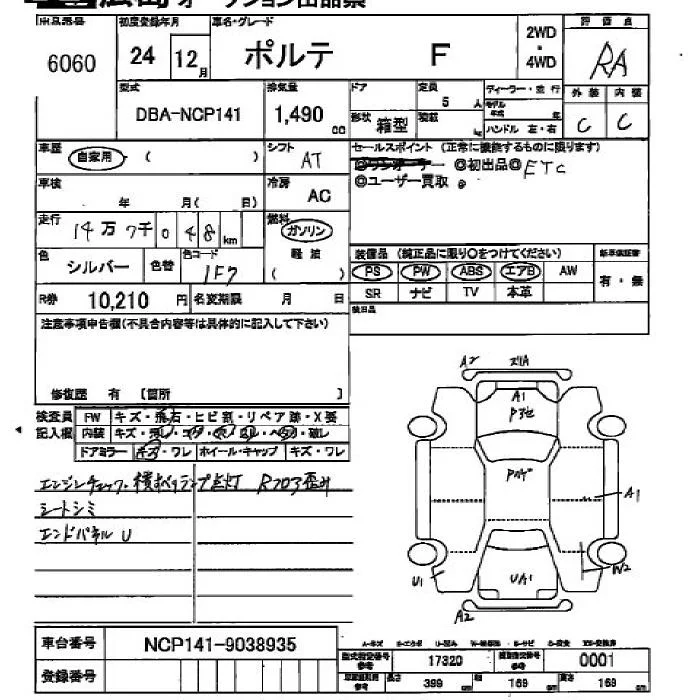 広島 オークション出品票
出品番号 初度登録年月 車名・グレード 評価点
6060 24 12月 ポルテ F 2WD・4WD RA
型式 排気量 ドア 定員 ディーラー・並行 外装 内装
DBA-NCP141 1,490 cc 5人 モデル年式 年 C C
形状 箱型 積載 kg ハンドル 左・右
車歴 自家用 ( ) シフト AT
セールスポイント (正常に機能するものに限ります)
◎初出品◎ETC
◎ユーザー買取。
車検 年 月( 日) 冷房 AC
走行 14万 7千 0 4 8 km 燃料 ガソリン 軽油 ( )
色 シルバー 色替 色コード 1F7
装備品 (純正品に限り○をつけてください) 新車保証書
PS PW ABS エアB AW 有・無
SR ナビ TV 本革
R券 10,210 円 名変期限 月 日
後日品
注意事項申告欄(不具合内容等は具体的に記入して下さい)
修復歴 有 〔箇所 〕
検査員 FW キズ・飛石・ヒビ割・リペア跡・X要
記入欄 内装 キズ・汚レ・コゲ・穴・ヨレ・ヘタリ・破レ
ドアミラー キズ・ワレ ホイール・キャップ キズ・ワレ
エンジンチェック 横すべりランプ点灯 Rフロア歪み
シートシミ
エンドパネル U
A2
A1
A1
U1 UA1 W2
A2
車台番号 NCP141-9038935
A-キズ E-エクボ U-凹み W-補修跡 S-サビ C-腐食 XX-交換済
登録番号
型式指定番号 参考 17320 類別指定番号 参考 0001
長さ 399 cm 幅 169 cm 高さ 169 cm